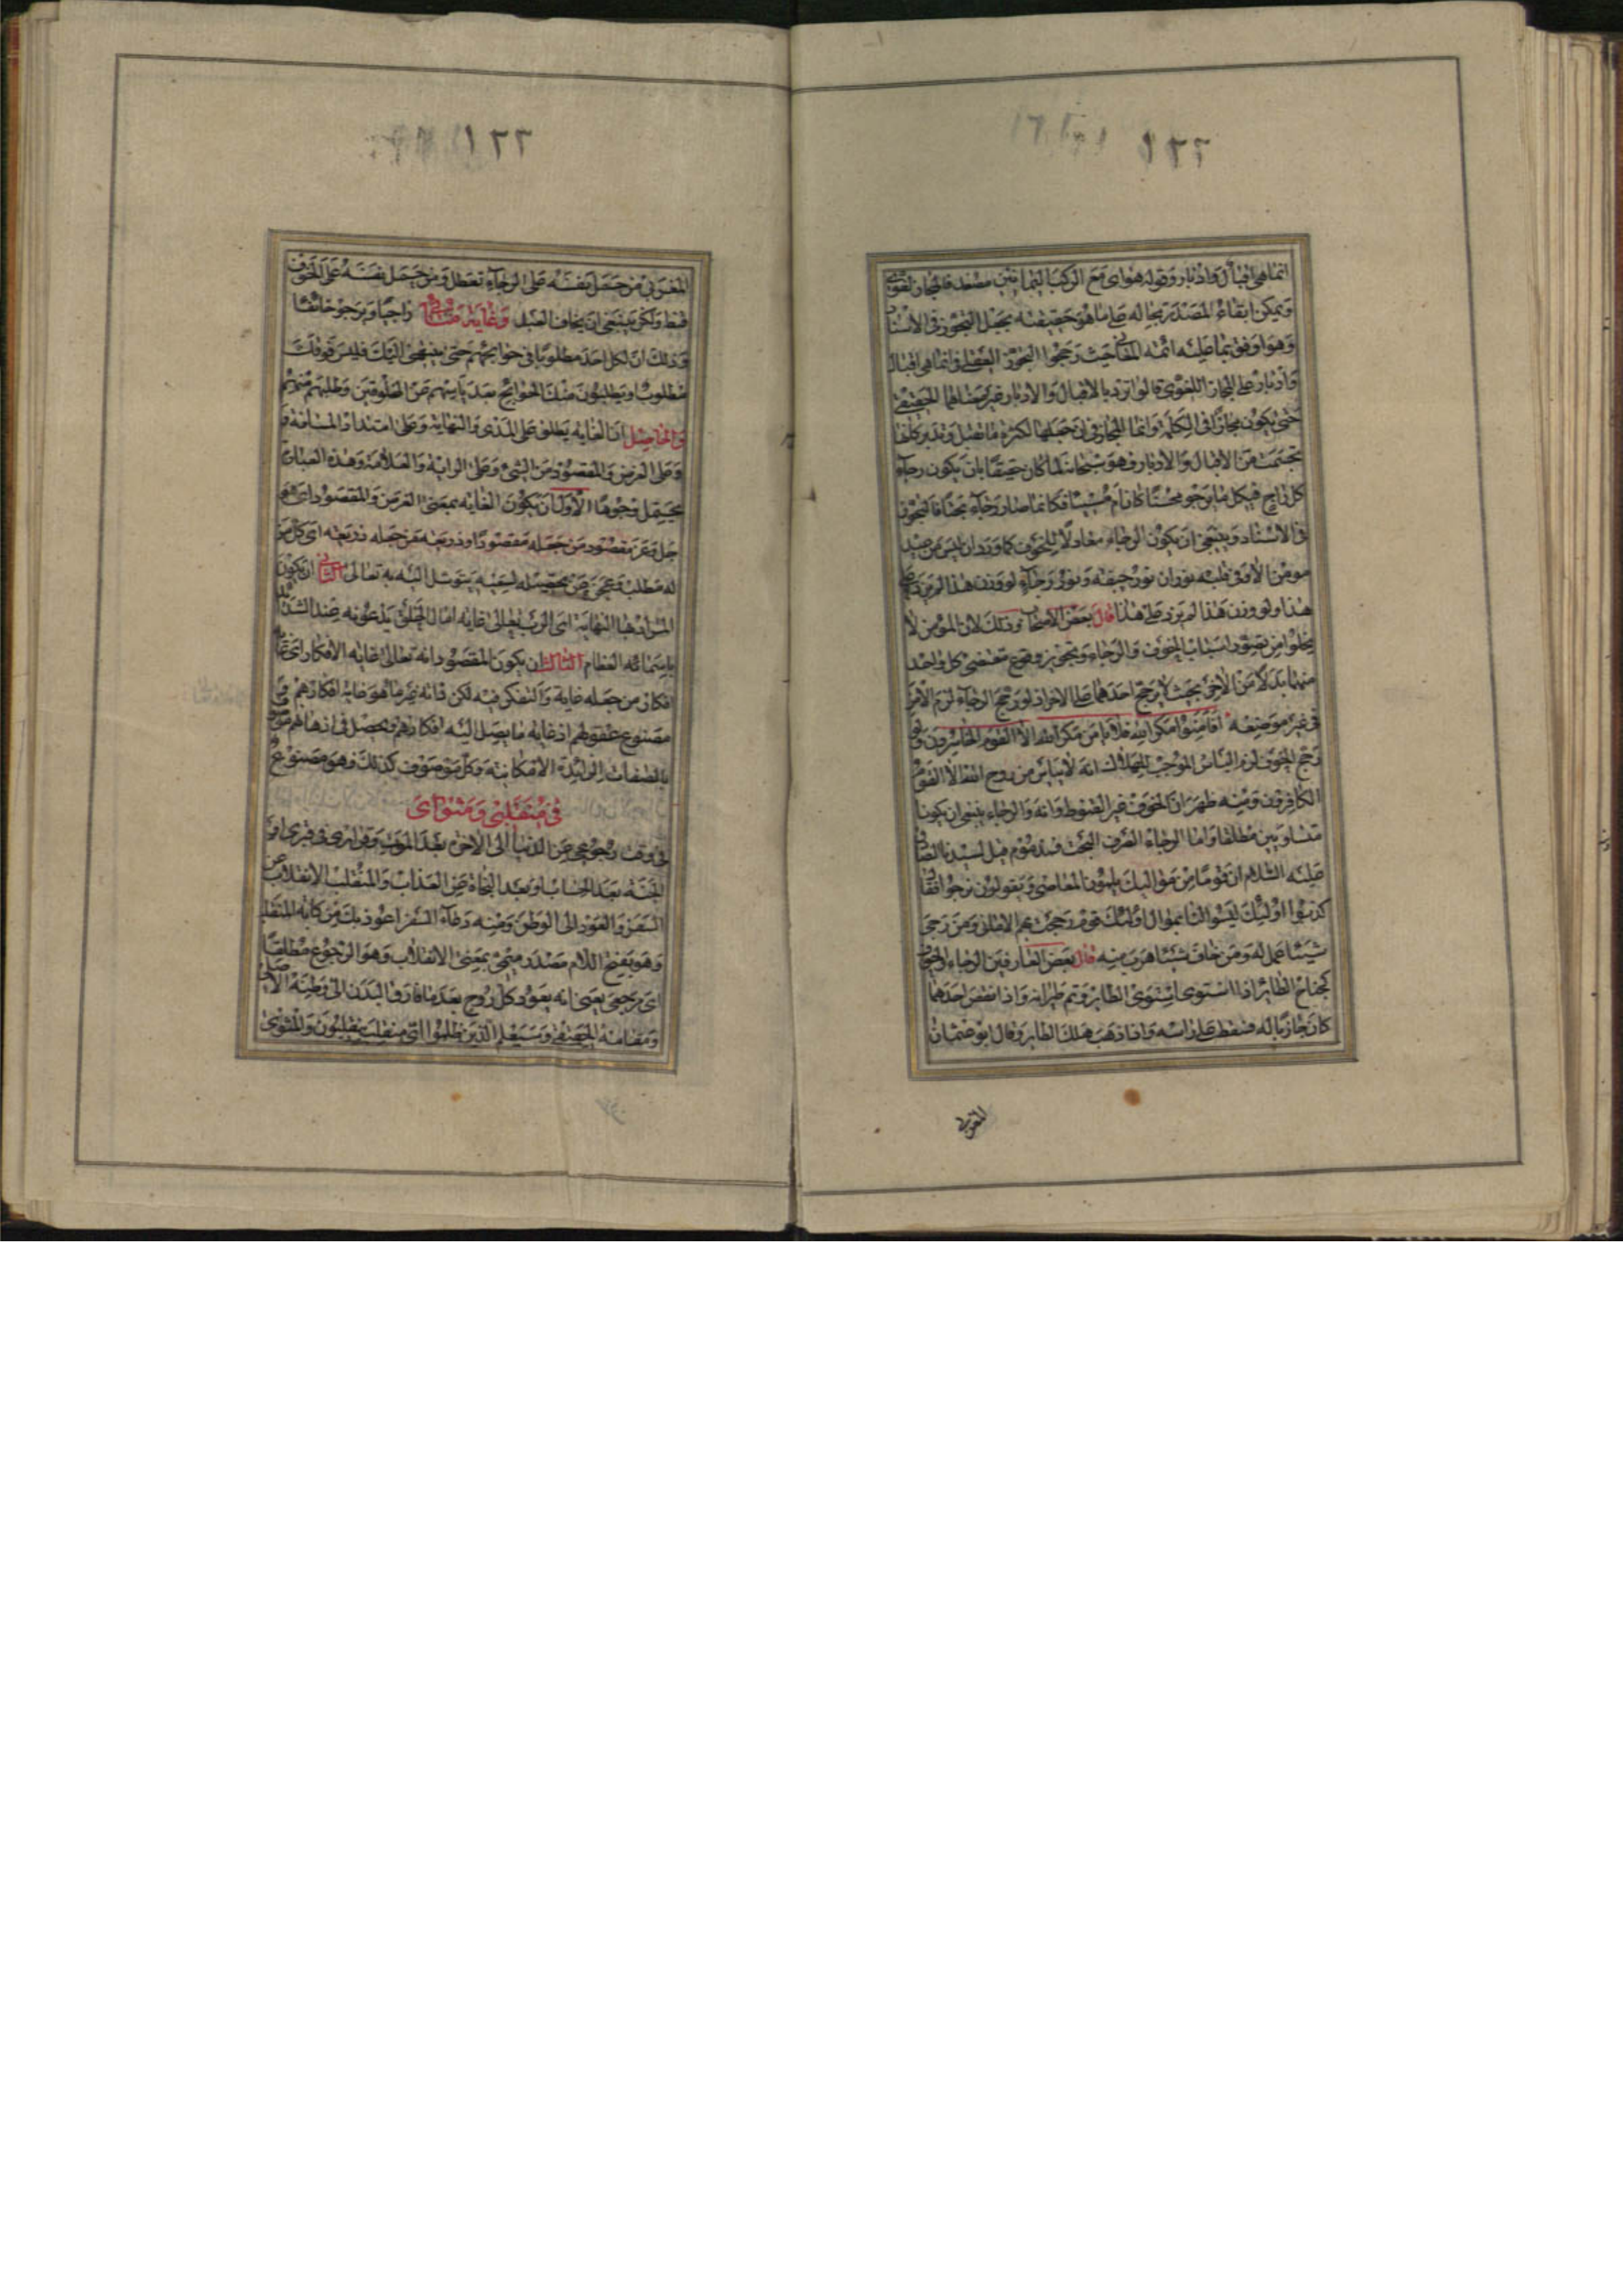 انما هی اقبال وادبار وقوله هوای مع الرکب الیمانین مصعد فالمجاز لغوی
ویمکن ابقاء المصدر بحاله علی ما هو حقیقته بجعل التجوز فی الاسناد
وهو اوفق بما علیه ائمة المعانی حیث رجحوا التجوز العقلی فی انما هی اقبال
وادبار علی المجاز اللغوی قالوا لم ترد بالاقبال والادبار غیر معناهما الحقیقی
حتی یکون مجازا فی الکلمة وانما المجاز فی ان جعلها لکثرة ما تقبل وتدبر کانها
تجسمت من الاقبال والادبار فهو سبحانه لما کان حقیقا بان یکون رجاء
کل راج فی کل ما یرجو محسنا کان ام مسیئا فکانما صار رجاء بحتا فالتجوز
فی الاسناد وینبغی ان یکون الرجاء معادلا للخوف کما ورد ان لیس من عبد
مومن الا وفی قلبه نوران نور خیفة ونور رجاء لو وزن هذا لم یزد علی
هذا ولو وزن هذا لم یزد علی هذا قال بعض الاصحاب وذلک لان المومن لا
یخلوا من تصور اسباب الخوف والرجاء وتجویز وقوع مقتضی کل واحد
منهما بدلا من الاخر بحیث لا یرجح احدهما علی الاخر اذ لو رجح الرجاء لزم الامن
فی غیر موضعه افامنوا مکر الله فلا یامن مکر الله الا القوم الخاسرون ولو
رجح الخوف لزم الیاس الموجب للهلاک انه لا ییاس من روح الله الا القوم
الکافرون ومنه ظهر ان الخوف غیر القنوط وانه والرجاء ینبغی ان یکونا
متساویین مطلقا واما الرجاء الصرف البحت فمذموم قیل لسیدنا الصادق
علیه السلام ان قوما من موالیک یلمون بالمعاصی ویقولون نرجوا فقال
کذبوا اولئک لیسوا لنا بموال اولئک قوم رجحت بهم الامانی ومن رجی
شیئا عمل له ومن خاف شیئا هرب منه قال بعض العارفین الرجاء والخوف
کجناح الطائر اذا استوی استوی الطایر وتم طیرانه واذا نقص احدهما
کان جاذبا له فسقط علی راسه واذا ذهب هلک الطایر وقال ابو عثمان
المغربی
المغربی من حمل نفسه علی الرجاء تعطل ومن حمل نفسه علی الخوف
قنط ولکن ینبغی ان یخاف العبد راجیا ویرجو خائفا وغایة منائی
وذلک ان لکل احد مطلوبا فی حوائجهم حتی ینتهی الیک فلیس فوقک
مطلوب او یطلبون منک الحوائج بعد یاسهم عن المخلوقین وطلبهم منهم
والحاصل ان الغایه یطلق علی المدی والنهایة وعلی امتداد المسافة و
وعلی الغرض والمقصود من الشیء وعلی الرایة والعلامة وهذه العبارة
یحتمل وجوها الاول ان یکون الغایه بمعنی الغرض والمقصود ای هو
جل وعز مقصود من جعله مقصودا وذریعة من جعله ذریعة ای کل من
له مطلب وعجز عن تحصیله لسعیه یتوسل الیه به تعالی الثانی ان یکون
المراد بها النهایة ای الرب تعالی غایة امال الخلق یدعونه عند الشدائد
باسمائه العظام الثالث ان یکون المقصود انه تعالی غایة الافکار ای غایة
افکار من جعله غایة والتفکر فیه لکن ذاته غیر ما هو غایة افکارهم و
مصنوع عقولهم اذ غایة ما یصل الیه افکارهم ویحصل فی اذهانهم موصوف
بالصفات الزائدة الامکانیة وکل موصوف کذلک فهو مصنوع
فی منقلبی ومثوای
فی وقت رجوعی عن الدنیا الی الاخرة بعد الموت وقراری فی قبری او فی
الجنة بعد الحساب او بعد النجاة من العذاب والمنقلب الانقلاب من
السفر والعود الی الوطن ومنه دعاء السفر اعوذ بک من کابة المنقلب
وهو بفتح اللام مصدر میمی بمعنی الانقلاب وهو الرجوع مطلقا
ای مرجعی یعنی انه یعود کل روح بعد ما فارق البدن الی وطنه الاصلی
ومقامه الحقیقی وسیعلم الذین ظلموا ای منقلب ینقلبون والمثوی